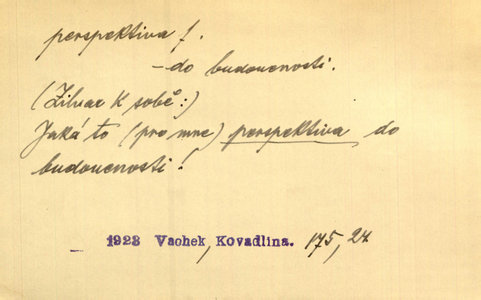 perspektiva f.
– do budoucnosti.
(Žilvar K sobě:)
Jaká to (pro mne) perspektiva do
budoucnosti!
1923 Vachek, Kovadlina. 175, 24